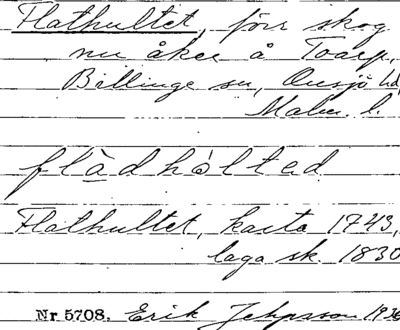 Flathultet, förr skog
nu åker å Toarp,
Billinge sn, Onsjö hd,
Malm. l.
flàdhòltad
Flathultet, karta 1743,
laga sk. 1830
Nr. 5708. Erik Jeppsson 1936